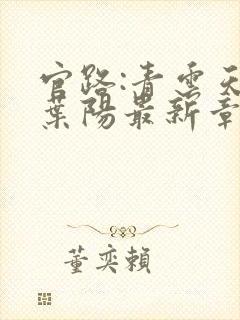 官路:青云天
葉陽最新章
董奕賴